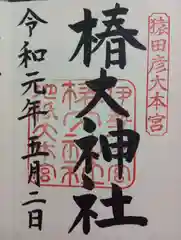 猿田彦大本宮
椿大神社
令和元年五月二日